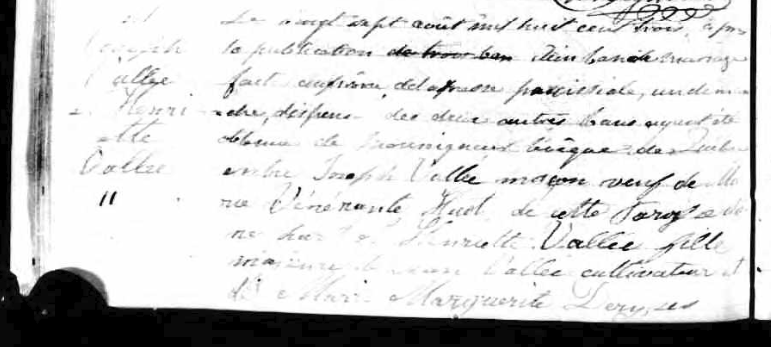 et
Joseph
Vallée
Henri
ette
Vallée
"
Le vingt sept août mil huit cent trois, après
la publication de trois ban d'un ban de mariage
fait au prône de la messe paroissiale, un diman
che, dispense des deux autres bans ayant été
obtenue de Monseigneur l'évêque de Québec
entre Joseph Vallée maçon veuf de Ma
rie Vénérante Huot de cette paroisse d'une
part & Henriette Vallée fille
majeure de Vallée cultivateur et
de Marie Marguerite Dery, ses